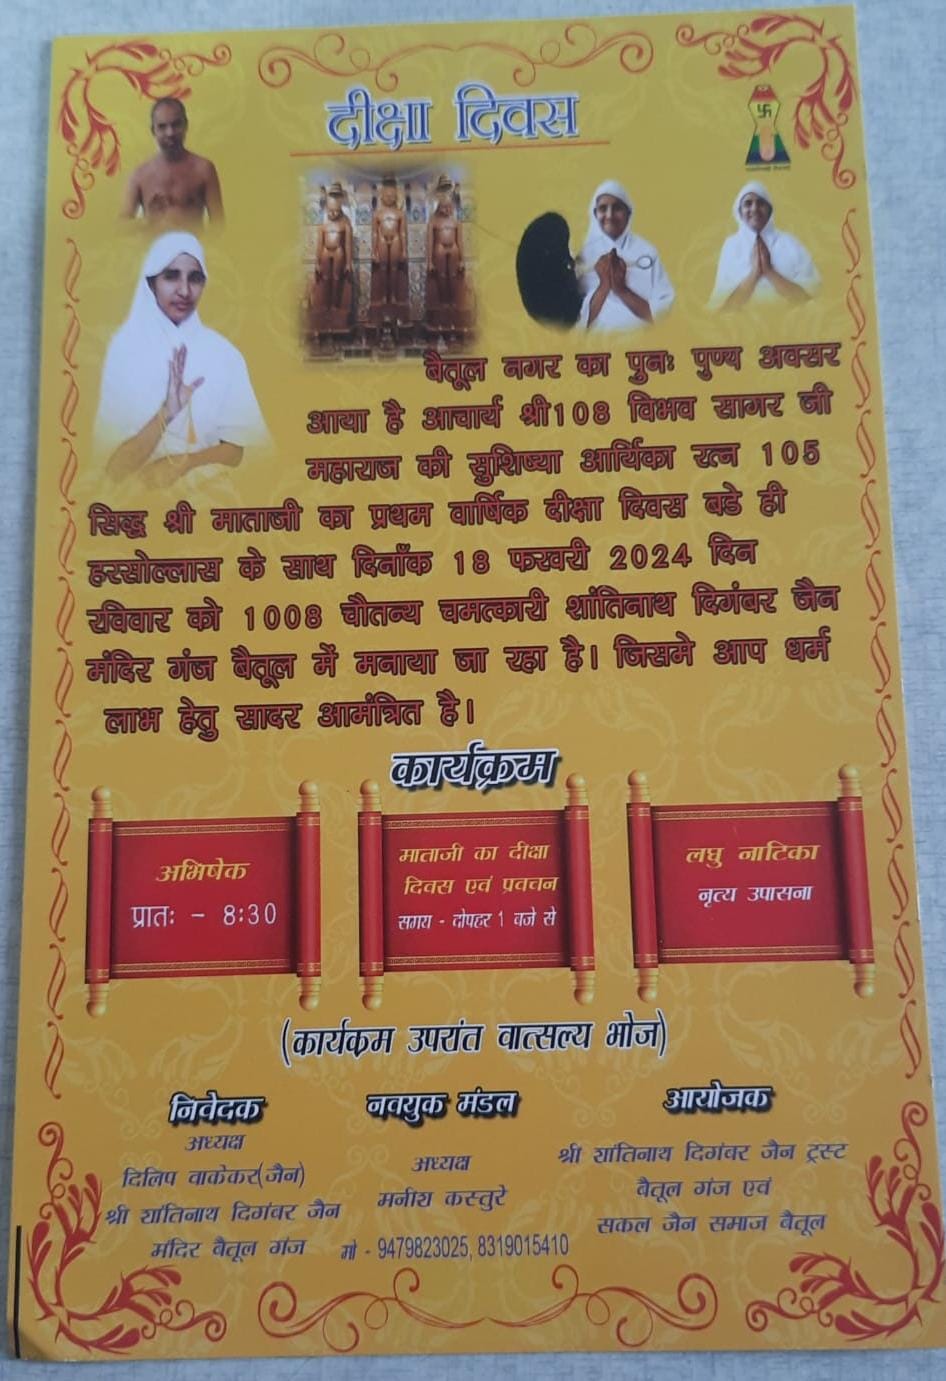 दीक्षा दिवस
बैतूल नगर का पुनः पुण्य अवसर
आया है आचार्य श्री108 विभव सागर जी
महाराज की सुशिष्या आर्यिका रत्न 105
सिद्ध श्री माताजी का प्रथम वार्षिक दीक्षा दिवस बडे ही
हरसोल्लास के साथ दिनाँक 18 फरवरी 2024 दिन
रविवार को 1008 चौतन्य चमत्कारी शांतिनाथ दिगंबर जैन
मंदिर गंज बैतूल में मनाया जा रहा है। जिसमे आप धर्म
लाभ हेतु सादर आमंत्रित है।
कार्यक्रम
अभिषेक
प्रातः - 8:30
माताजी का दीक्षा
दिवस एवं प्रवचन
समय - दोपहर 1 बजे से
लघु नाटिका
नृत्य उपासना
(कार्यक्रम उपरांत वात्सल्य भोज)
निवेदक
अध्यक्ष
दिलिप वाकेकर(जैन)
श्री शांतिनाथ दिगंबर जैन
मंदिर बैतूल गंज
नवयुक मंडल
अध्यक्ष
मनीश कस्तुरे
मो - 9479823025, 8319015410
आयोजक
श्री शांतिनाथ दिगंबर जैन ट्रस्ट
बैतूल गंज एवं
सकल जैन समाज बैतूल